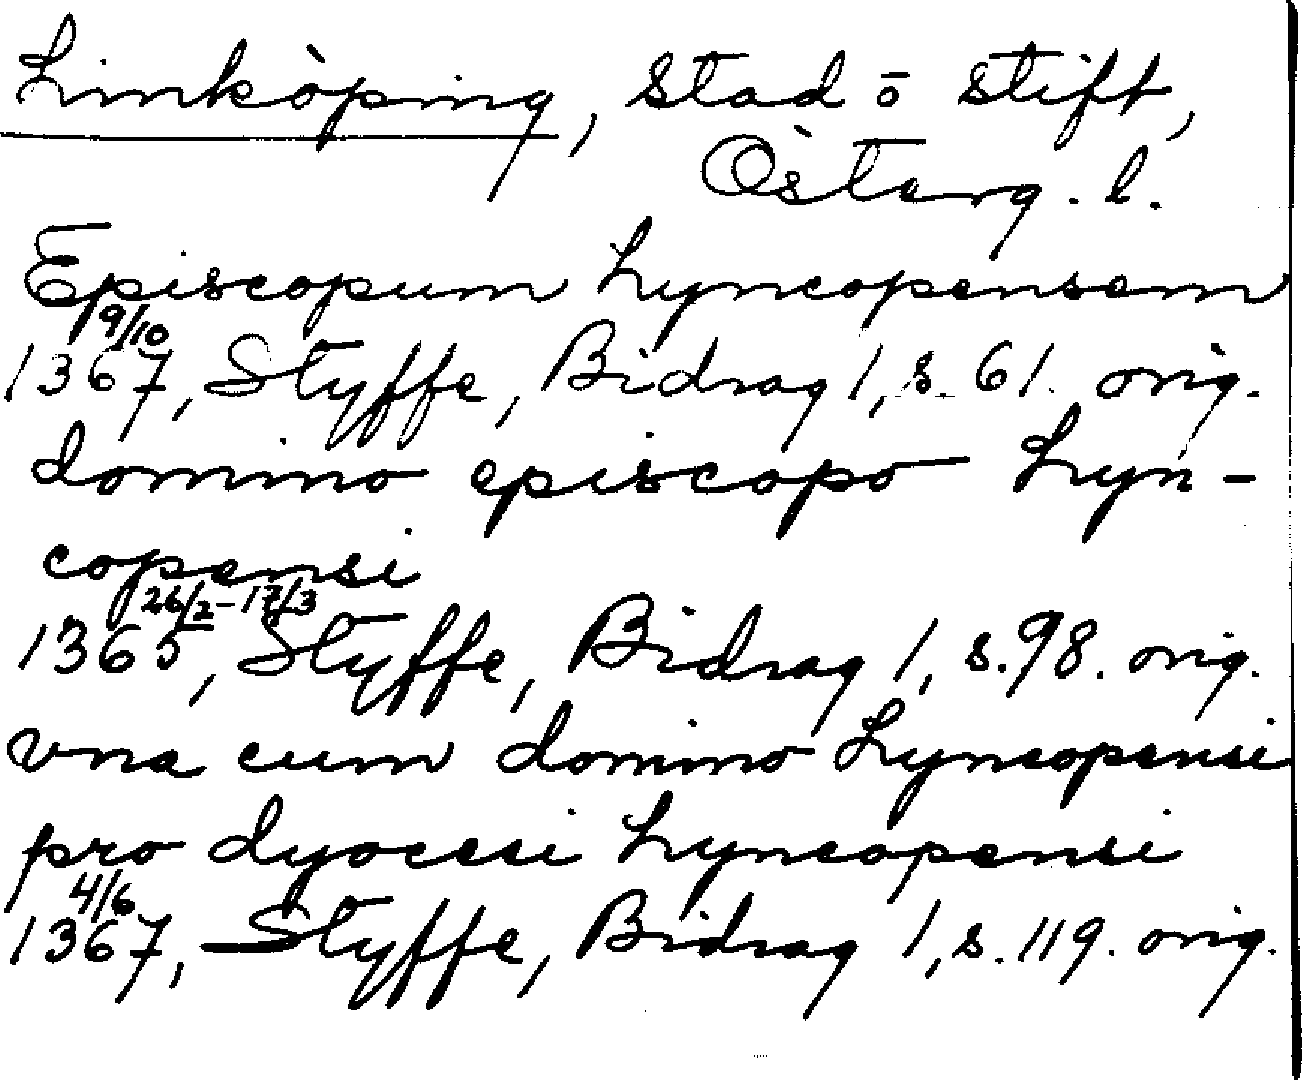 Linköping, stad ō stift,
Österg. l.
Episcopum Lyncopensem
9/10
1367, Styffe, Bidrag 1, s. 61. orig.
domino episcopo Lyn-
copensi
26/2-17/3
1365, Styffe, Bidrag 1, s. 98. orig.
vna cum domino Lyncopensi
pro dyocesi Lyncopensi
4/6
1367, Styffe, Bidrag 1, s. 119. orig.